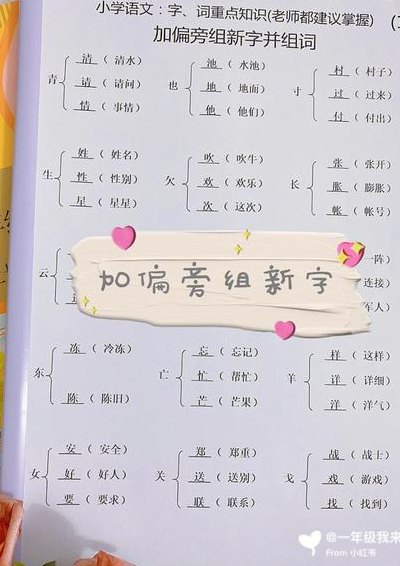 小学语文：字、词重点知识(老师都建议掌握)
加偏旁组新字并组词
清（清水） 池（水池） 村（村子）
青 请（请问） 也 地（地面） 寸 过（过来）
情（事情） 他（他们） 付（付出）
姓（姓名） 吹（吹牛） 张（张开）
生 性（性别） 欠 欢（欢乐） 长 胀（膨胀）
星（星星） 次（这次） 帐（帐号）
一阵）
云 连接）
军人）
加偏旁组新字
冻（冷冻） 忘（忘记） 样（这样）
东 亡 忙（帮忙） 羊 详（详细）
陈（陈旧） 芒（芒果） 洋（洋气）
安（安全） 郑（郑重） 战（战士）
女 好（好人） 关 送（送别） 戈 戏（游戏）
要（要求） 联（联系） 找（找到）
@一年级我来
From 小红书